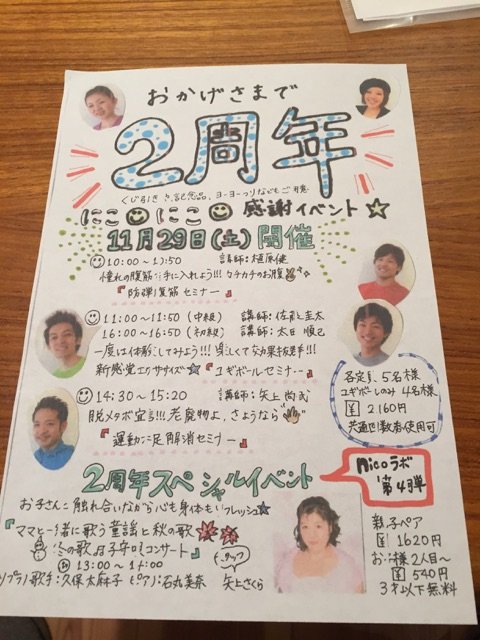 おかげさまで
2周年
くじ引き 記念品、ヨーヨーつりなどもご用意
にこ にこ 感謝イベント☆
11月29日(土)開催
10:00〜10:50 講師:植原健
憧れの腹筋 手に入れよう!!! カチカチのお腹
『防弾腹筋セミナー』
11:00〜11:50(中級) 講師:佐藤圭太
16:00〜16:50(初級) 講師:太田
一度は体験してみよう!!! 楽しくて効果抜群!!!
新感覚エクササイズ☆『ユギボールセミナー』
14:30〜15:20 講師:矢上尚武
脱メタボ宣言!!! 老廃物よ、さようなら
『運動不足解消セミナー』
各定員、5名様
ユギボールのみ 4名様
¥2,160円
共通回数券使用可
2周年スペシャルイベント
nicoラボ
第4弾
お子さんと触れ合いながら心も身体もリフレッシュ☆
『ママと一緒に歌う童謡と秋の歌
冬の歌 親子コンサート』
13:00〜14:00
ソプラノ歌手:久保太麻子 ピアノ:石丸美奈
スタッフ
矢上さくら
親子ペア
¥1620円
お子様2人目〜
¥540円
3才以下無料